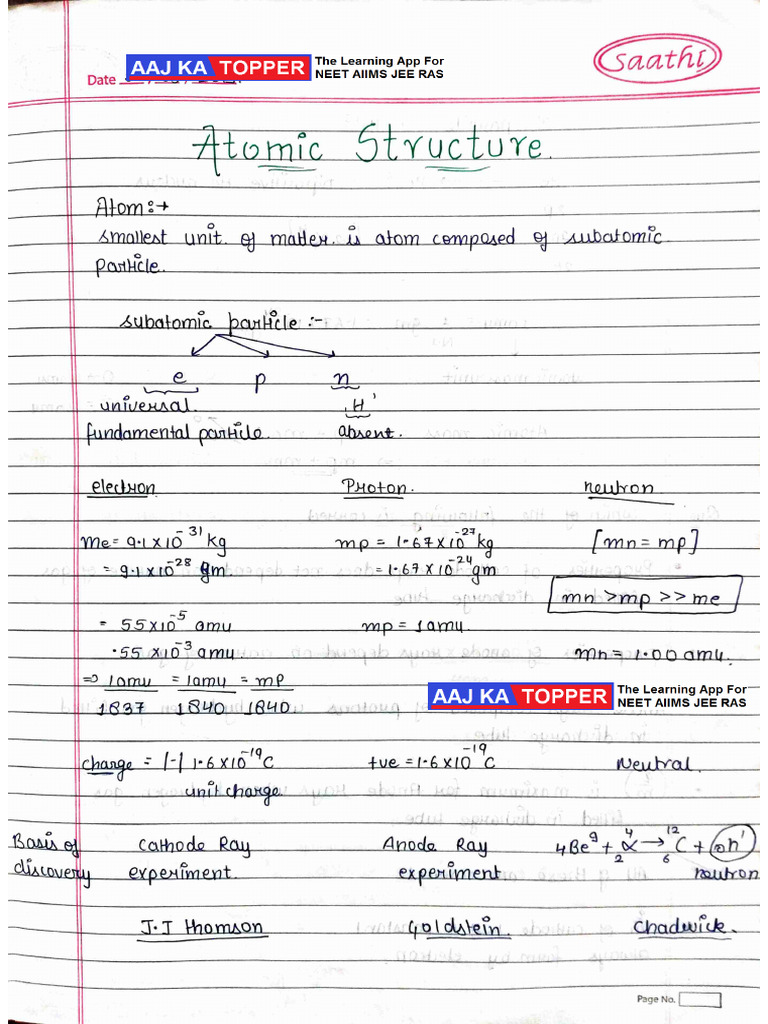 AAJ KA TOPPER The Learning App For NEET AIIMS JEE RAS
saathi
Date
Atomic Structure.
Atom:→
smallest unit. of matter. is atom composed of subatomic
particle.
subatomic particle :-
e p n
universal. ₁H¹
fundamental particle. absent.
electron Proton. neutron
me = 9.1×10⁻³¹ kg mp = 1.67×10⁻²⁷ kg [mn = mp]
= 9.1×10⁻²⁸ gm = 1.67×10⁻²⁴ gm
mn >mp >> me
= 55×10⁻⁵ amu mp = 1amu.
.55 ×10⁻³ amu. mn = 1.00 amu.
⇒ 1amu = 1amu = mp
1837 1840 1840
AAJ KA TOPPER The Learning App For NEET AIIMS JEE RAS
charge = (-) 1.6×10⁻¹⁹C +ve = 1.6×10⁻¹⁹ C Neutral.
unit charge
Basis of discovery
Cathode Ray Anode Ray ₄Be⁹ + ₂α⁴ → ₆C¹² + ₀n¹
experiment. experiment neutron
J.J thomson Goldstein. Chadwick.
Page No.